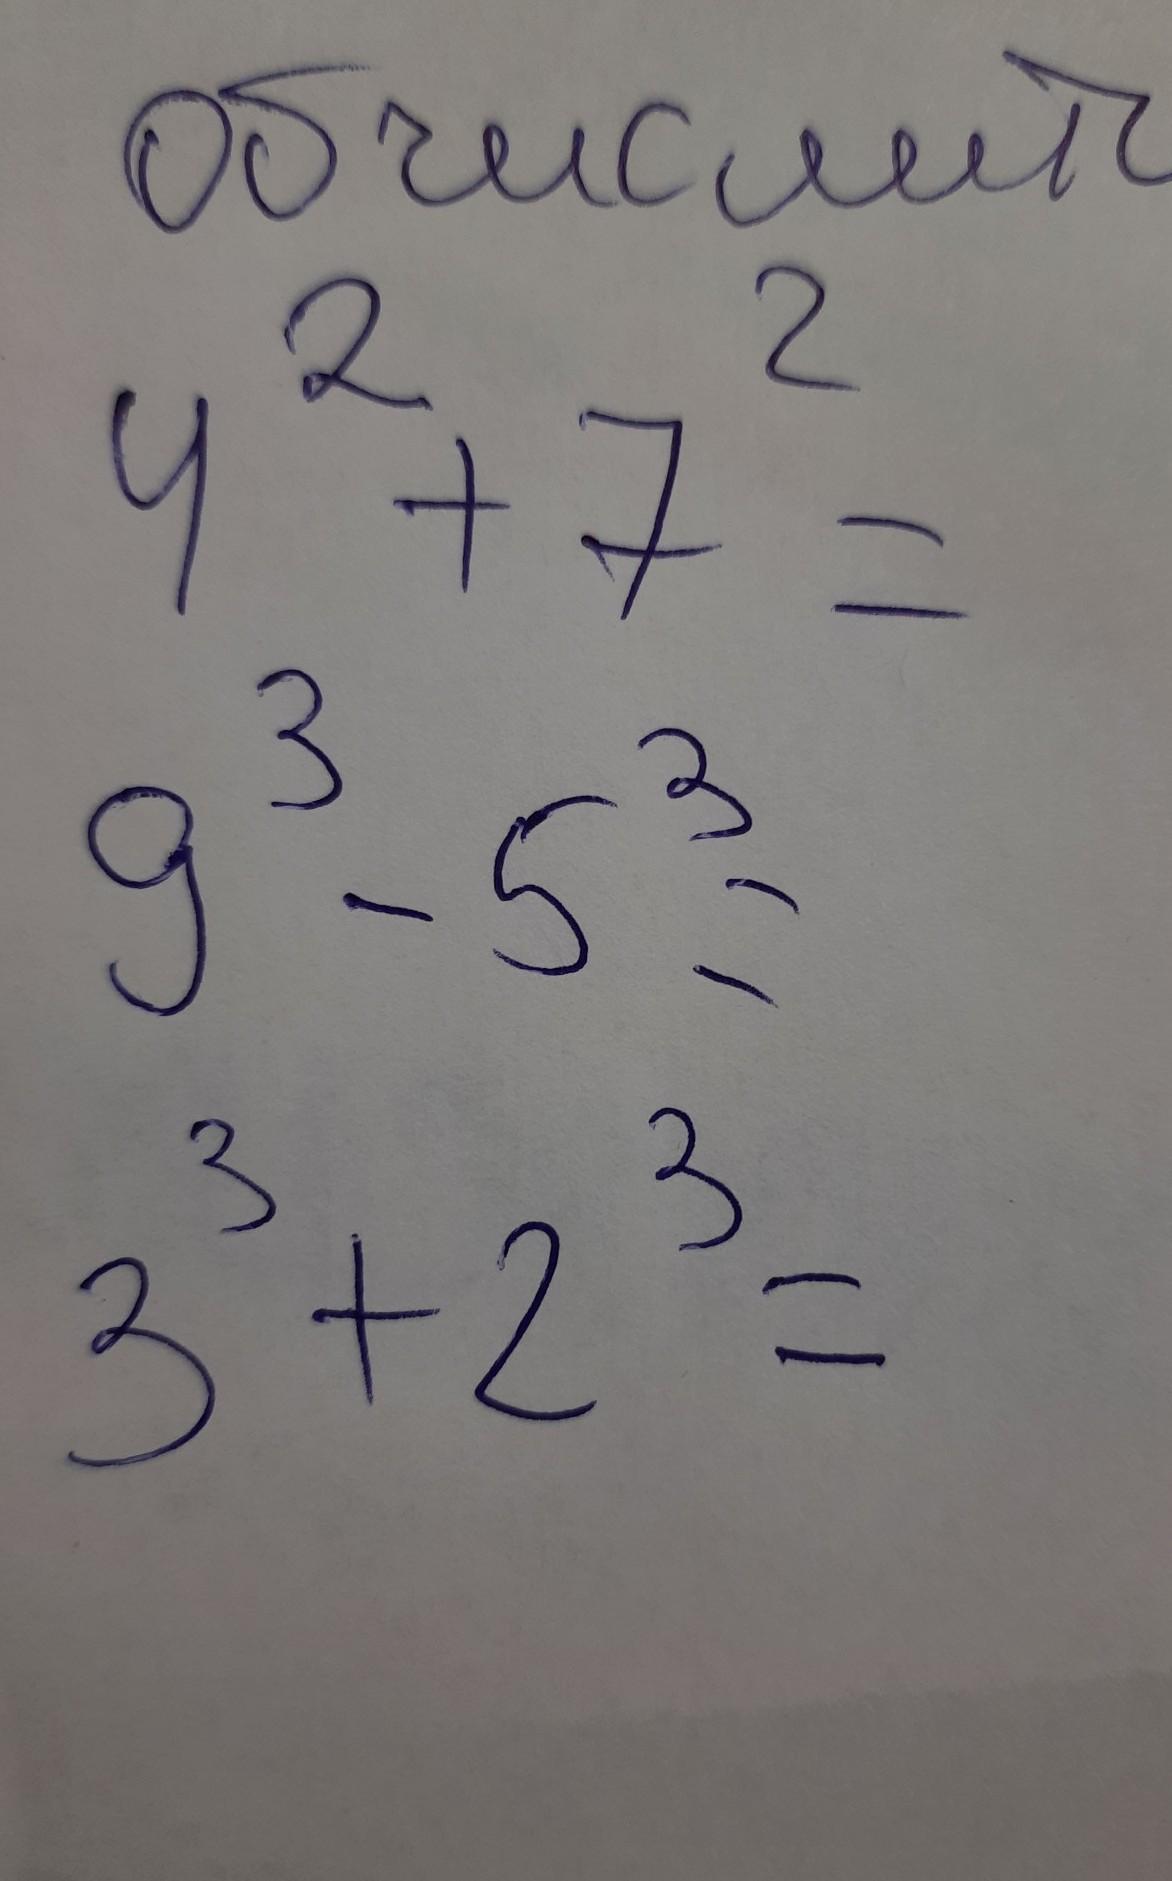 обчислить
4² + 7² =
9³ - 5³ =
3³ + 2³ =